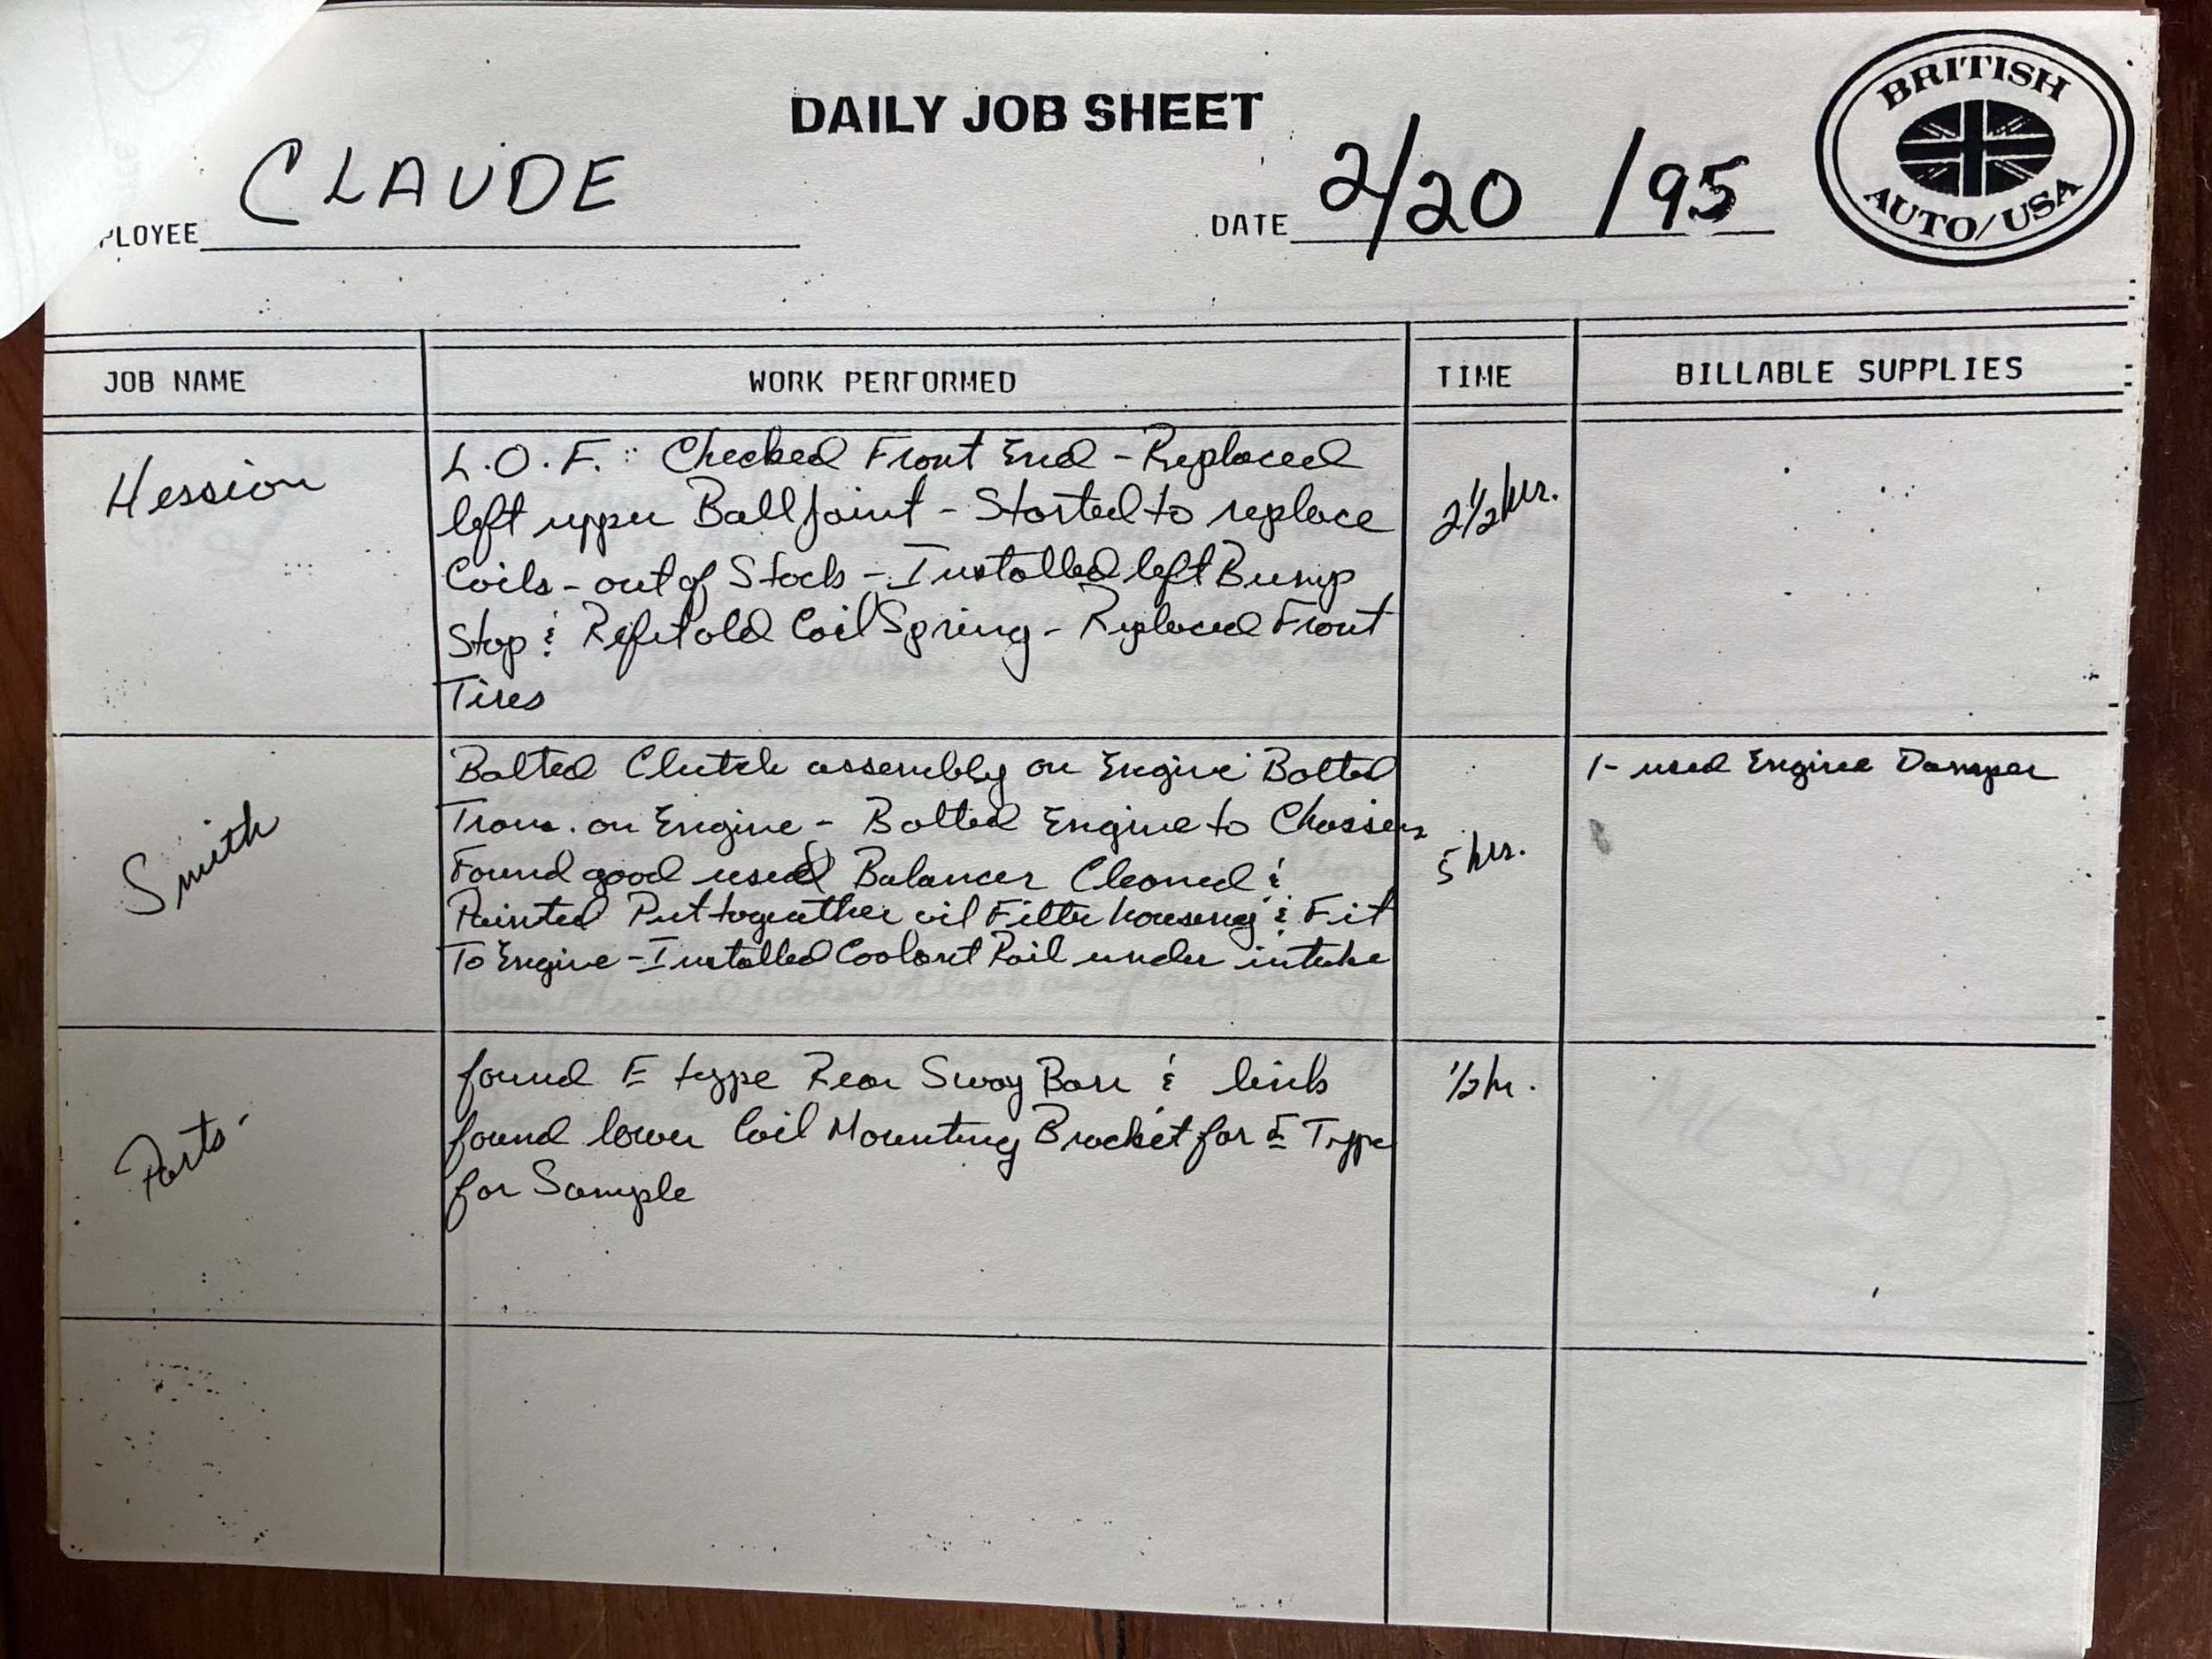 DAILY JOB SHEET
BRITISH
AUTO/USA
PLOYEE CLAUDE
DATE 2/20 /95
JOB NAME WORK PERFORMED TIME BILLABLE SUPPLIES
Hession
L.O.F. Checked Front End - Replaced
left upper Ball Joint - Started to replace
Coils - out of Stock - Installed left Bump
Stop & Refit old Coil Spring - Replaced Front
Tires
2 1/2 hrs.
Smith
Bolted Clutch assembly on Engine Bolted
Trans. on Engine - Bolted Engine to Chassis
Found good used Balancer Cleaned &
Painted Put togeather oil Filter housing & Fit
To Engine - Installed Coolant Rail under intake
5 hrs.
1- used Engine Damper
Parts -
found E type Rear Sway Bar & link
found lower Coil Mounting Bracket for E Type
for Sample
1/2 hr.